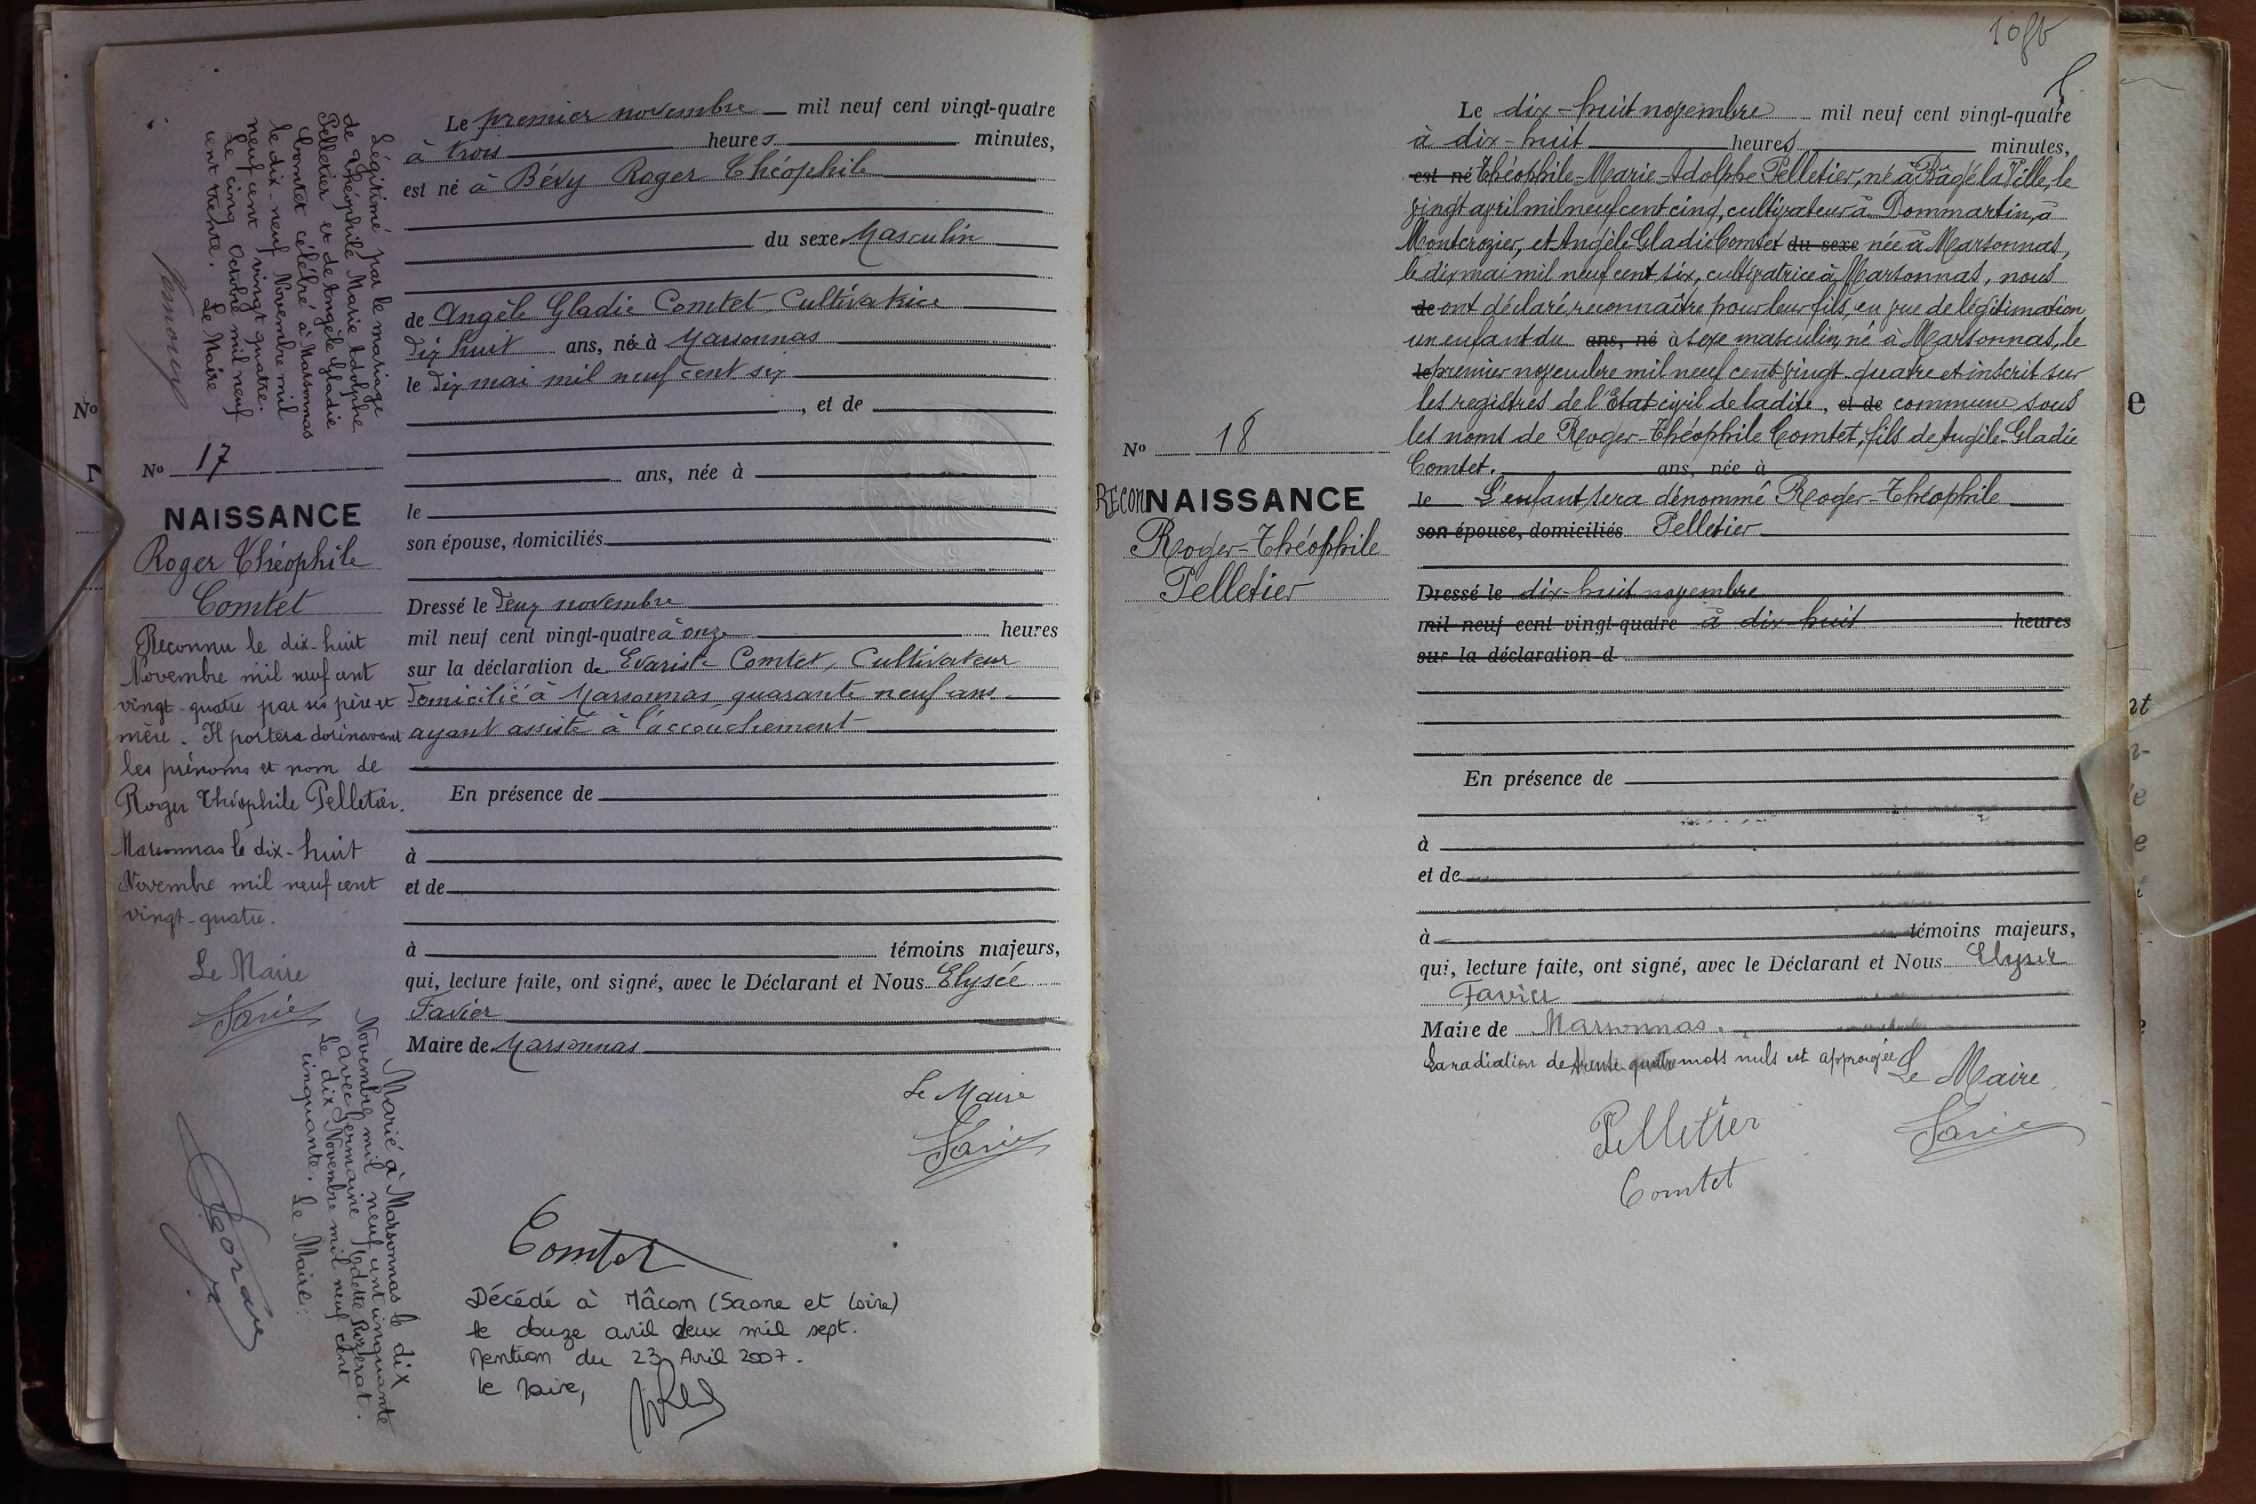 Légitimé par le mariage
de Théophile Marie Adolphe
Pelletier et de Angèle Gladie
Comtet célébré à Marsonnas
le dix-neuf Novembre mil
neuf cent vingt quatre.
Le cinq Octobre mil neuf
cent trente. Le Maire
No 17
NAISSANCE
Roger Théophile
Comtet
Reconnu le dix-huit
Novembre mil neuf cent
vingt-quatre par ses père et
mère. Il portera dorénavant
les prénoms et nom de
Roger Théophile Pelletier.
Marsonnas le dix-huit
Novembre mil neuf cent
vingt-quatre.
Le Maire
Favier
Marié à Marsonnas le dix
Novembre mil neuf cent cinquante
avec Germaine Odette
Le dix Novembre mil neuf cent
cinquante. Le Maire:
Le premier novembre mil neuf cent vingt-quatre
à trois heures minutes,
est né à Bévy Roger Théophile
du sexe Masculin
de Angèle Gladie Comtet, Cultivatrice
dix huit ans, née à Marsonnas
le dix mai mil neuf cent six
, et de
ans, née à
le
son épouse, domiciliés
Dressé le deux novembre
mil neuf cent vingt-quatre à onze heures
sur la déclaration de Evariste Comtet, Cultivateur
domicilié à Marsonnas quarante neuf ans
ayant assisté à l'accouchement
En présence de
à
et de
à témoins majeurs,
qui, lecture faite, ont signé, avec le Déclarant et Nous Elysée
Favier
Maire de Marsonnas
Le Maire
Favier
Comtet
Décédé à Mâcon (Saone et Loire)
le douze avril deux mil sept.
Mention du 23 Avril 2007.
le Maire,
No 18
RECONNAISSANCE
Roger-Théophile
Pelletier
Le dix-huit novembre mil neuf cent vingt-quatre
à dix-huit heures minutes,
est né Théophile-Marie-Adolphe Pelletier, né à Bâgé la Ville, le
vingt avril mil neuf cent cinq, cultivateur à Dommartin, à
Montcrozier, et Angèle Gladie Comtet du sexe née à Marsonnas,
le dix mai mil neuf cent six, cultivatrice à Marsonnas, nous
de ont déclaré reconnaître pour leur fils, en vue de légitimation
un enfant du ans, né à sexe masculin, né à Marsonnas, le
le premier novembre mil neuf cent vingt-quatre et inscrit sur
les registres de l'Etat civil de ladite, et de commune sous
les noms de Roger-Théophile Comtet, fils de Angèle-Gladie
Comtet. ans, née à
le L'enfant sera dénommé Roger-Théophile
son épouse, domiciliés Pelletier
Dressé le dix-huit novembre
mil neuf cent vingt-quatre à dix-huit heures
sur la déclaration d
En présence de
à
et de
à témoins majeurs,
qui, lecture faite, ont signé, avec le Déclarant et Nous Elysée
Favier
Maire de Marsonnas.
La radiation de trente quatre mots nuls est approuvée
Le Maire
Pelletier
Favier
Comtet